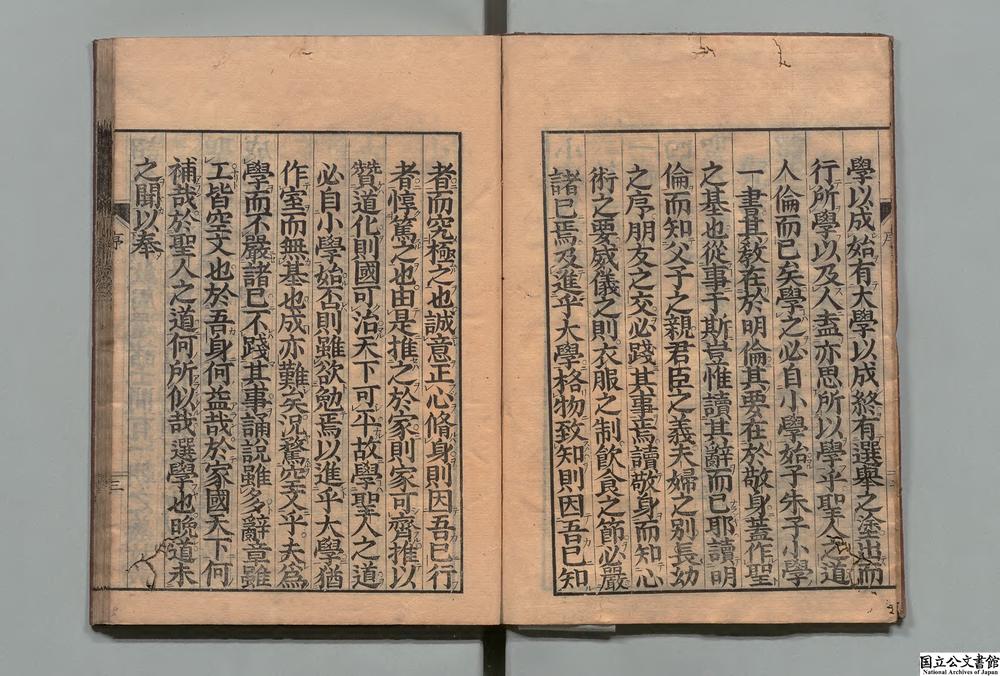 學以成始有大學以成終有選舉之塗出而
行所學以及人盍亦思所以學乎聖人之道
人倫而已矣學之必自小學始子朱子小學
一書其敎在於明倫其要在於敬身蓋作聖
之基也從事于斯豈惟讀其辭而已耶讀明
倫而知父子之親君臣之義夫婦之別長幼
之序朋友之交必踐其事焉讀敬身而知心
術之要威儀之則衣服之制飮食之節必嚴
諸己焉及進乎大學格物致知則因吾已知
者而究極之也誠意正心脩身則因吾已行
者惇篤之也由是推之於家則家可齊推以
贊道化則國可治天下可平故學聖人之道
必自小學始否則雖欲勉焉以進乎大學猶
作室而無基也成亦難矣況騖空文乎夫爲
學而不嚴諸己不踐其事誦說雖多辭章雖
工皆空文也於吾身何益哉於家國天下何
補哉於聖人之道何所似哉選學也晚道未
之聞以奉
序
三
国立公文書館
National Archives of Japan